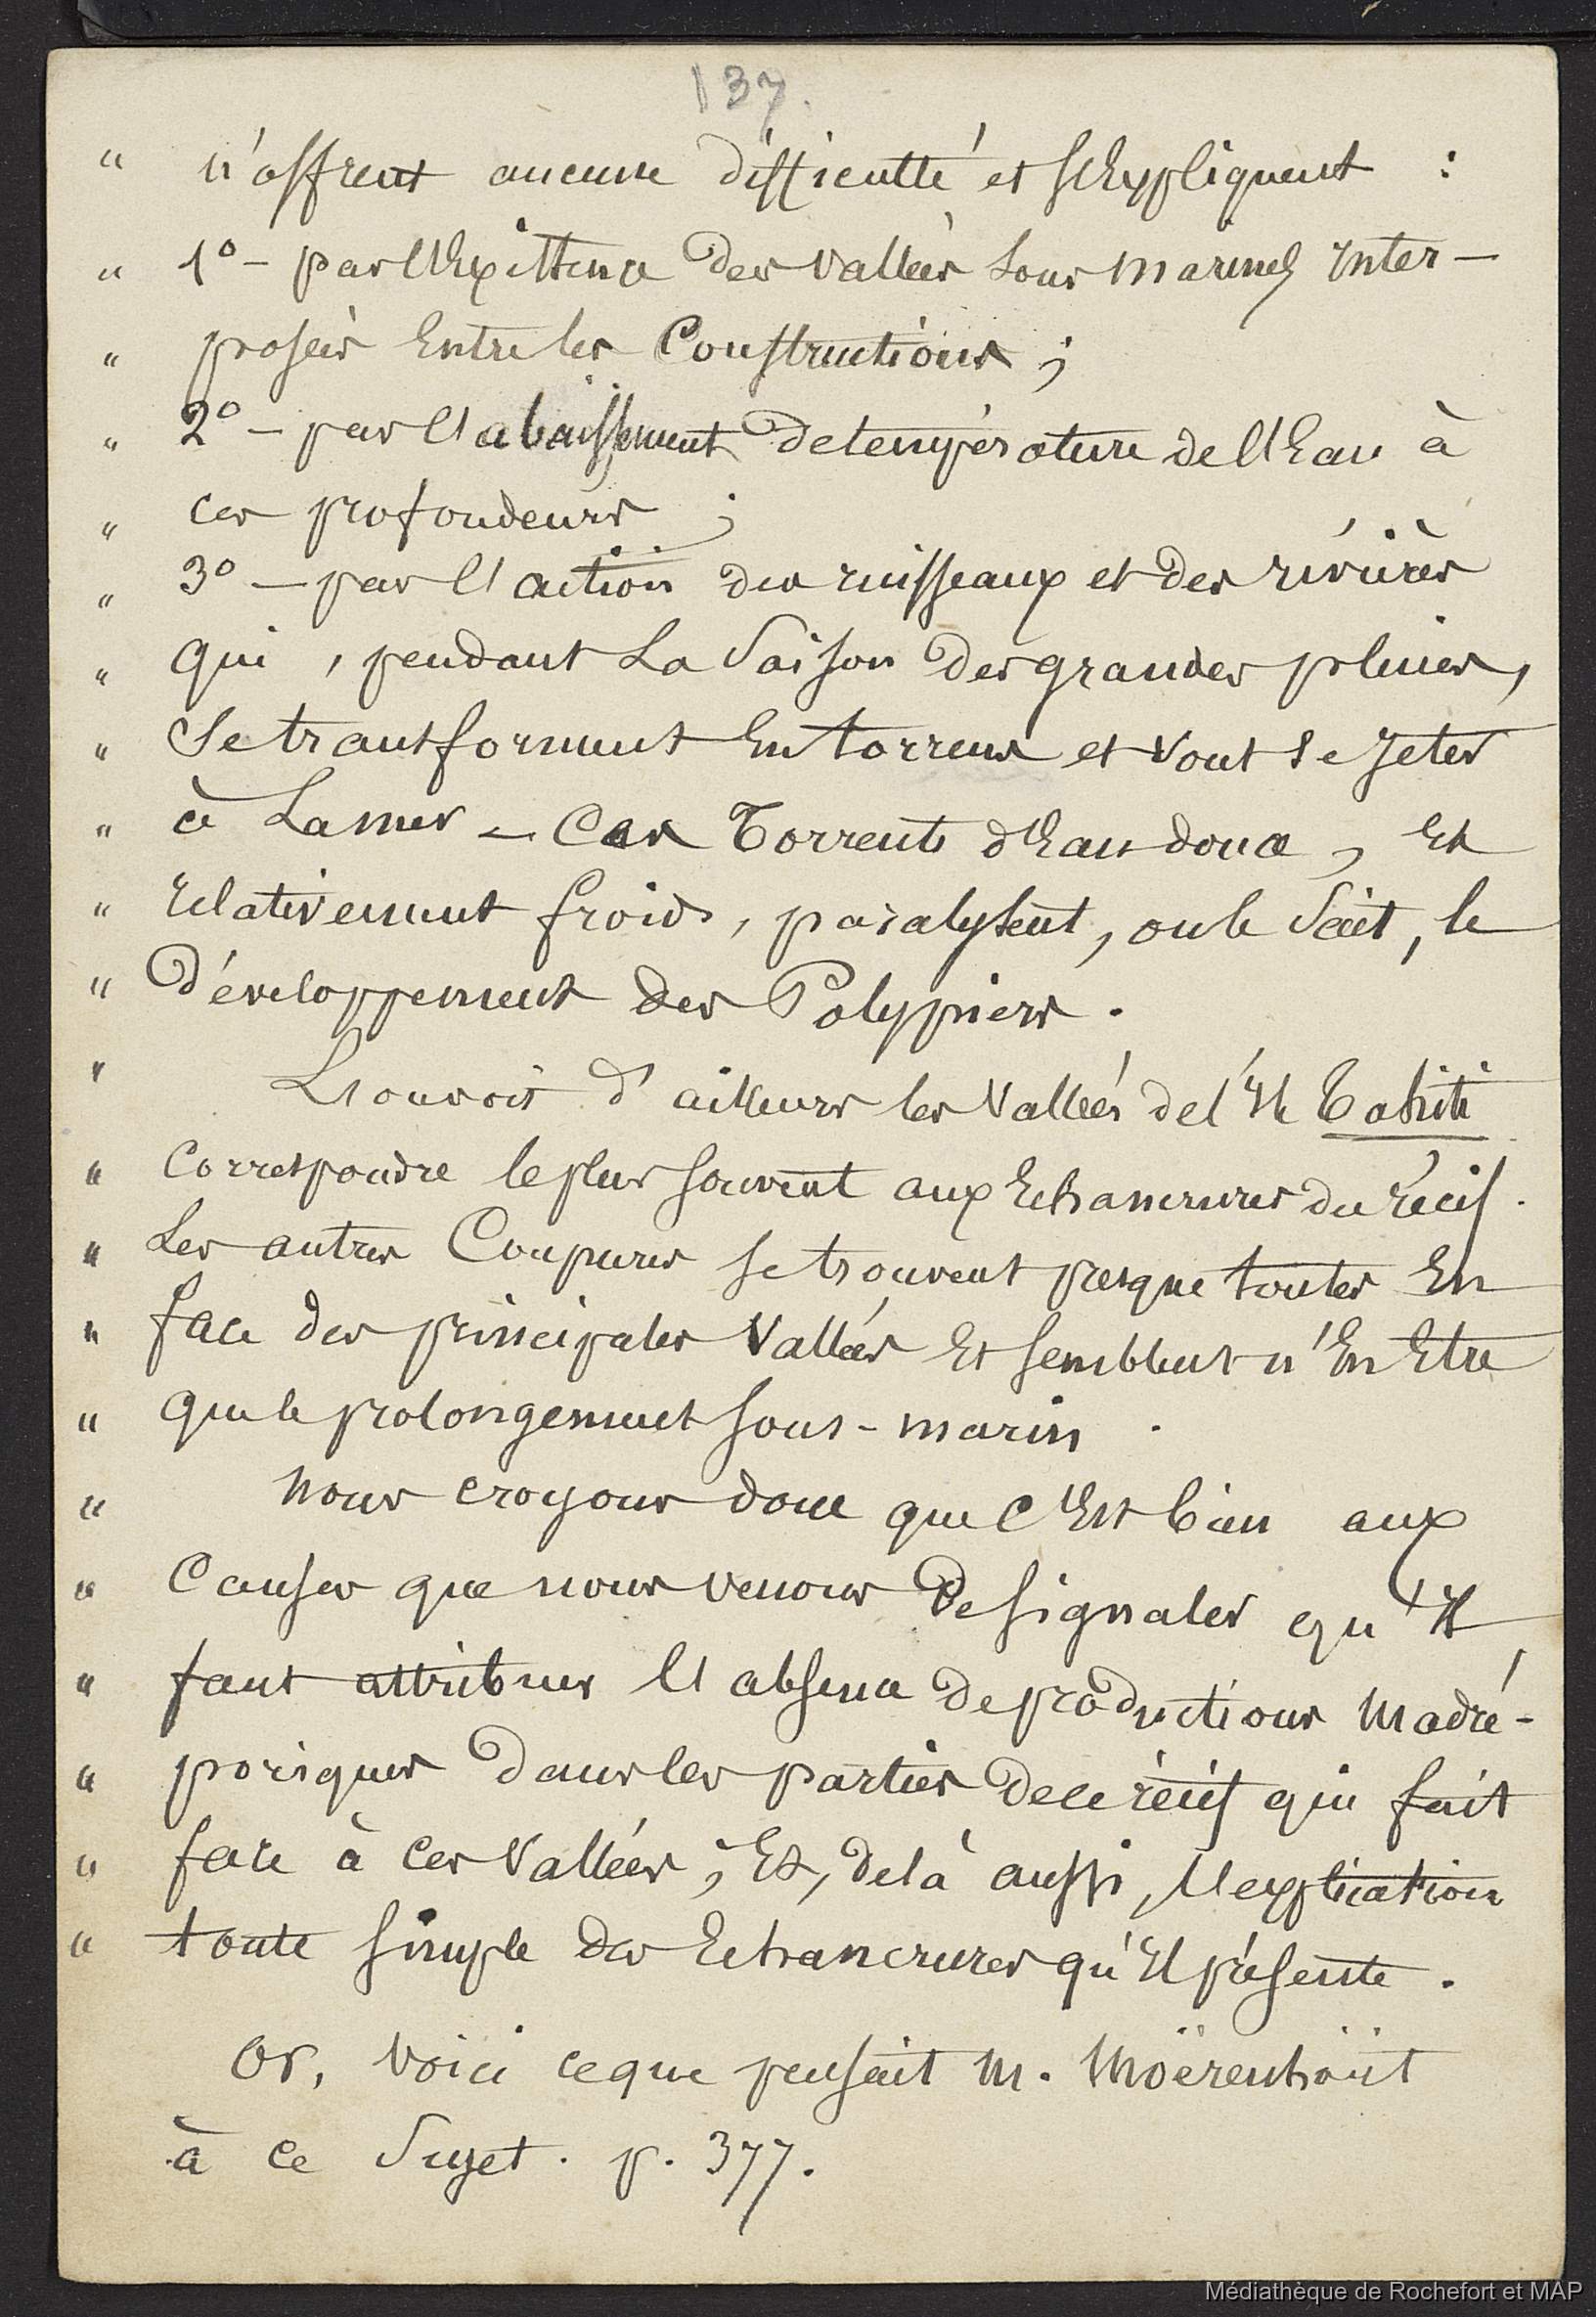 137.
" n'offrent aucune difficulté et s'Expliquent :
" 1º - par l'Existence des vallées sous marines Inter-
" posées Entre les Constructions ;
" 2º - par l'abaissement de température de l'Eau à
" ces profondeurs ;
" 3º - par l'action des ruisseaux et des rivières
" qui, pendant La Saison des grandes pluies,
" Se transforment En torrens et vont se Jeter
" à La mer - Ces Torrents d'Eau douce, Et
" relativement froids, paralysent, on le Sait, le
" développement des Polypiers.
" L'on voit d'ailleurs les Vallées de l'Ile Tahiti
" Correspondre le plus souvent aux Echancrures du récif.
" Les autres Coupures se trouvent presque toutes En
" face des principales Vallées Et semblent n'En Etre
" que le prolongement sous-marin.
" Nous croyons donc que c'Est bien aux
" Causes que nous venons De signaler qu'Il
" faut attribuer l'absence de productions Madré-
" poriques dans les parties de ce récif qui fait
" face à ces Vallées ; Et, de là aussi, l'explication
" toute simple des Echancrures qu'Il présente.
Or, Voici ce que pensait M. Moërenhoüt
à ce Sujet. p. 377.
Médiathèque de Rochefort et MAP